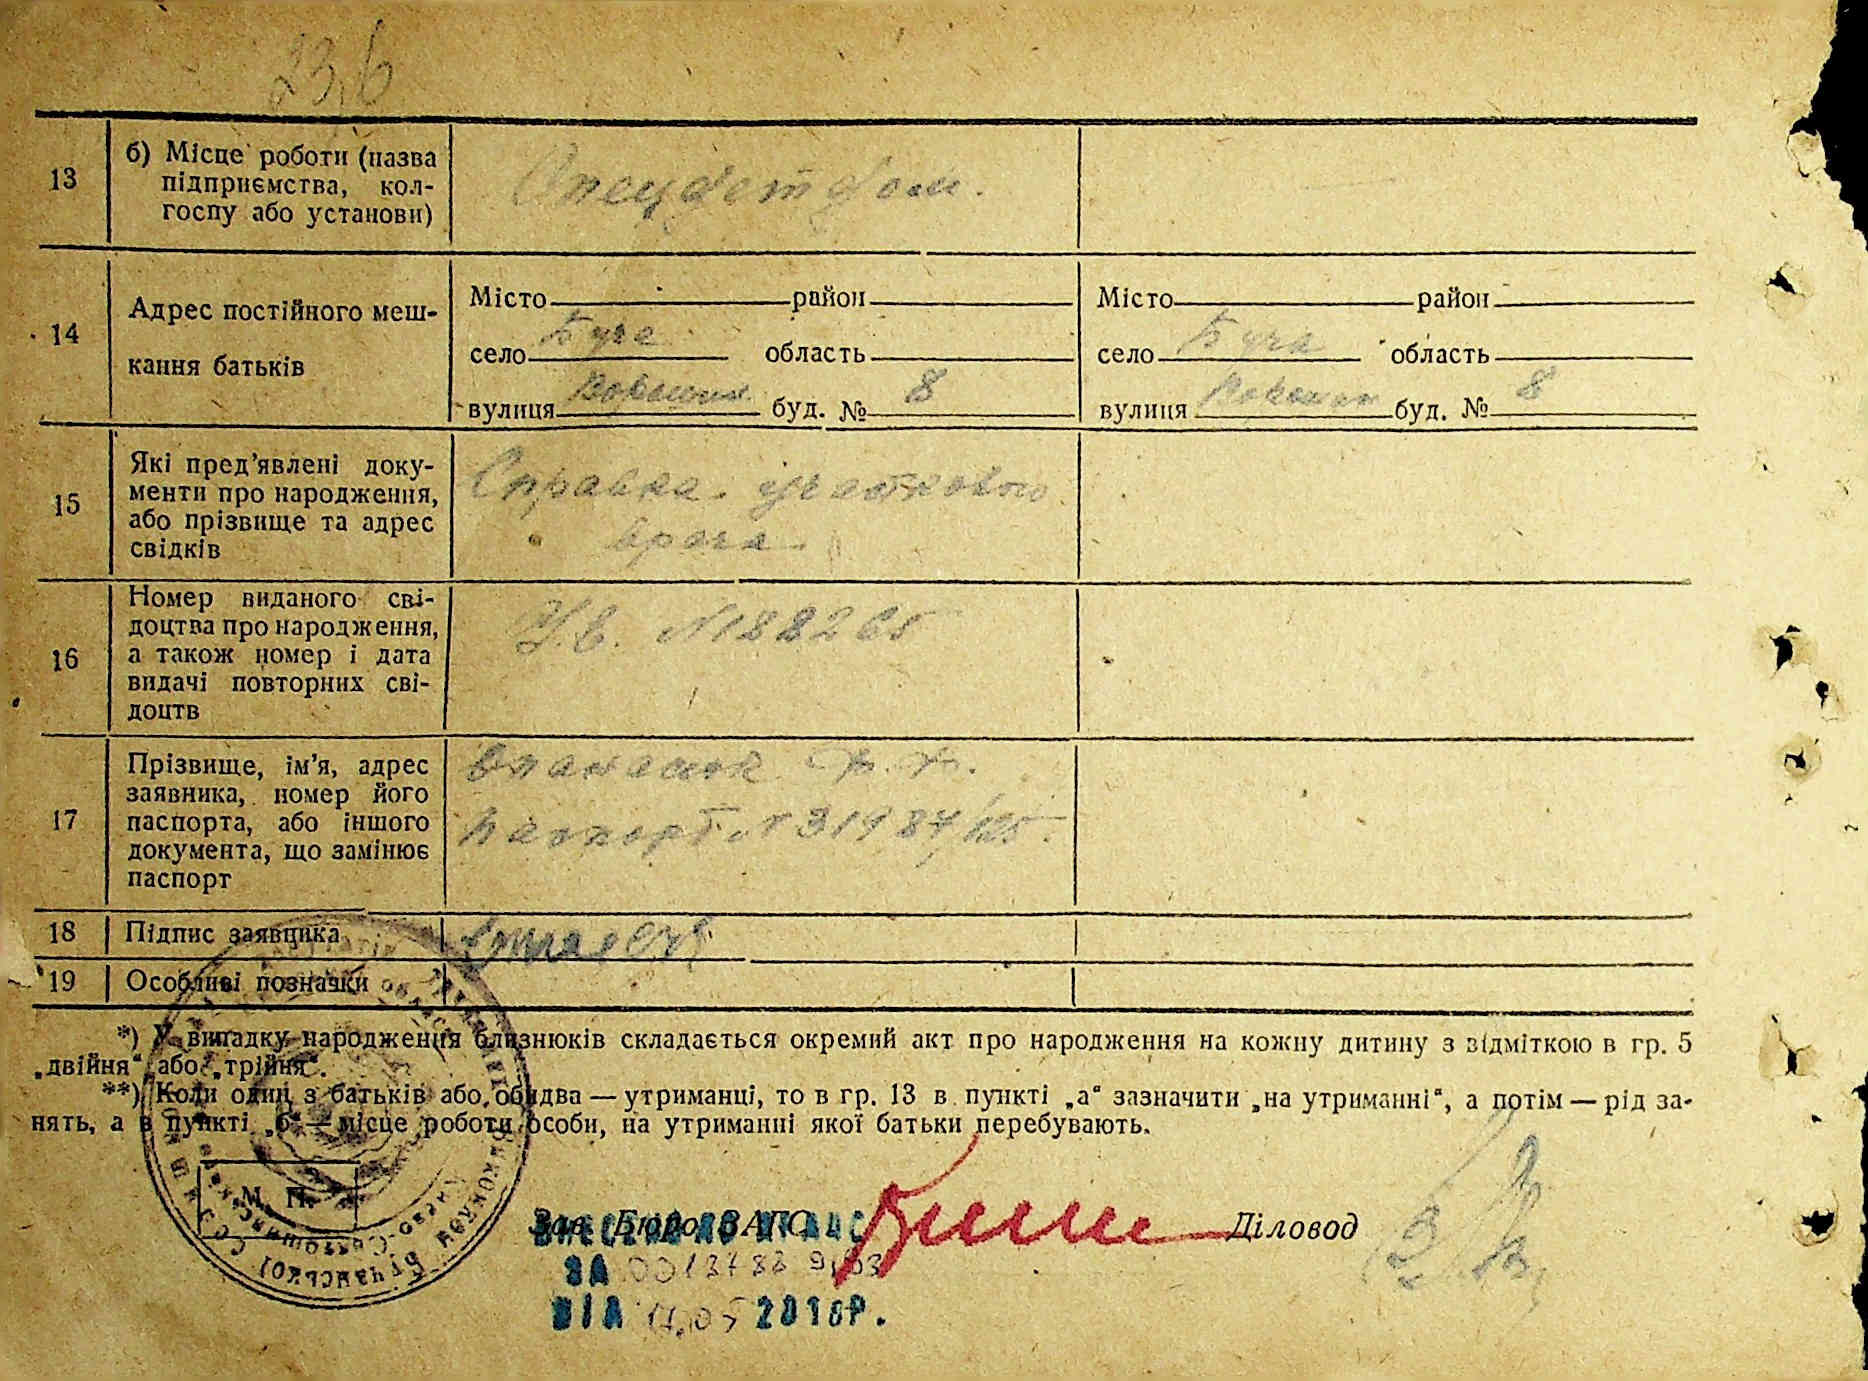 23,6
13
б) Місце роботи (назва
підприємства, кол-
госпу або установи)
Спецдетдом.
14
Адрес постійного меш-
кання батьків
Місто район
село Буча область
вулиця Ворошил буд. № 8
Місто район
село Буча область
вулиця Ворошил буд. № 8
15
Які пред'явлені доку-
менти про народження,
або прізвище та адрес
свідків
Справка участкового
врача
16
Номер виданого сві-
доцтва про народження,
а також номер і дата
видачі повторних сві-
доцтв
17
Прізвище, ім'я, адрес
заявника, номер його
паспорта, або іншого
документа, що замінює
паспорт
Паспорт
18
Підпис заявника
19
Особливі позначки
*) У випадку народження близнюків складається окремий акт про народження на кожну дитину з відміткою в гр. 5
„двійня“ або „трійня“.
**) Коли один з батьків або обидва — утриманці, то в гр. 13 в пункті „а“ зазначити „на утриманні“, а потім — рід за-
нять, а в пункті „б“ — місце роботи особи, на утриманні якої батьки перебувають.
М. П.
Зав. Бюро ЗАГС
Діловод
ЗА
ВІД 2018Р.